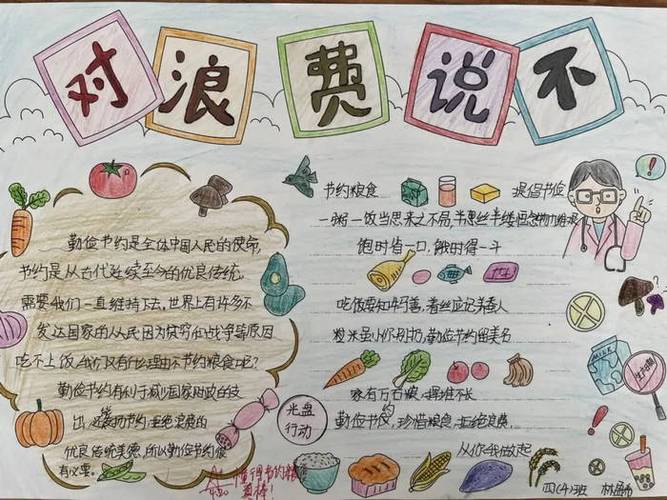 对浪费说不
勤俭节约是全体中国人民的使命,
节约是从古代延续至今的优良传统.
需要我们一直维持下去,世界上有许多不
发达国家的人民因为贫穷和战争等原因
吃不上饭,我们又有什么理由不节约粮食呢?
勤俭节约有利于减少国家财政的支
出,拒绝浪费的
优良传统美德,所以勤俭节约很
有必要。
节约粮食
提倡节俭
一粥一饭当思来之不易,半丝半缕恒念物力维艰
饱时省一口,饿时得一斗
吃饭要知牛马善,着丝应记养蚕人
粒米虽小勿扔,勤俭节约留美名
家有万石粮,挥霍不长
勤俭节约,珍惜粮食,拒绝浪费.
从你我做起
光盘
行动
MILK
四(4)班
林